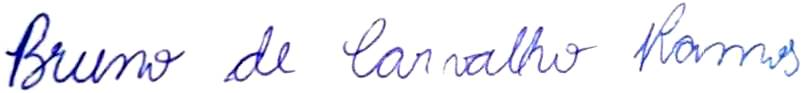 Bruno de Carvalho Ramos